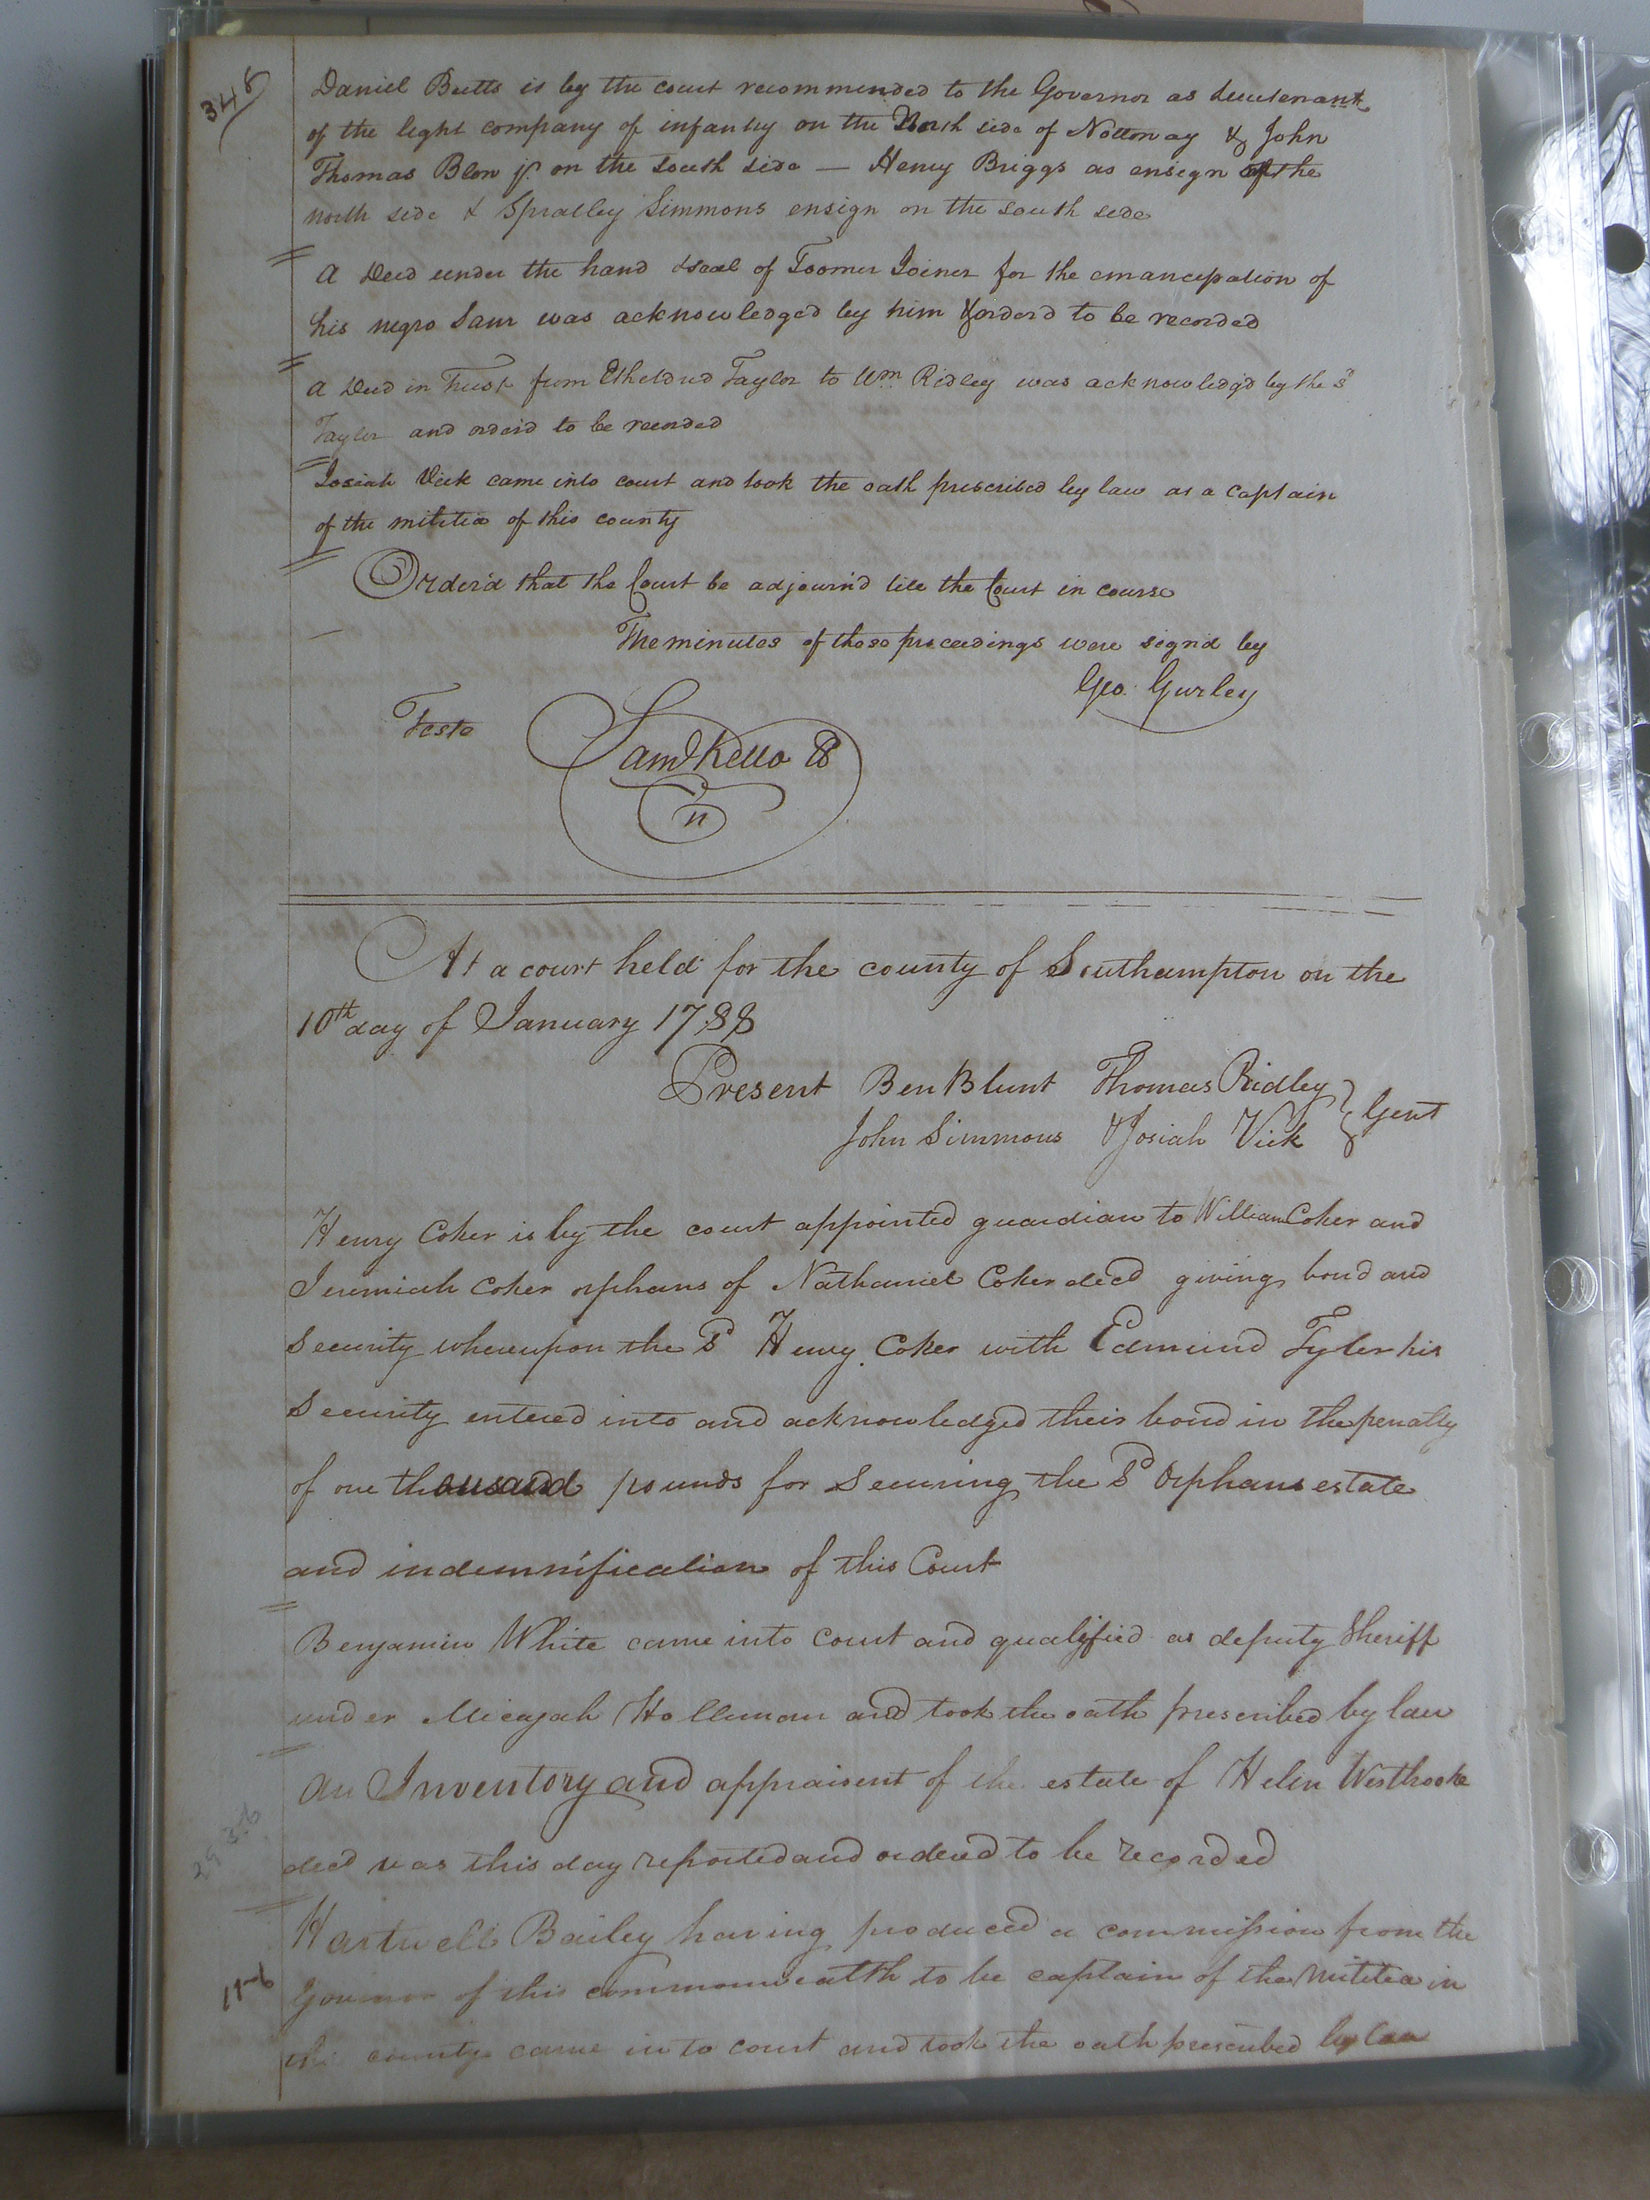 348
Daniel Butts is by the court recommended to the Governor as Lieutenant
of the light company of infantry on the North side of Nottoway & John
Thomas Blow jr. on the south side — Henry Briggs as ensign of the
north side & Spratley Simmons ensign on the south side
A Deed under the hand & seal of Toomer Joiner for the emancipation of
his negro Sam was acknowledged by him & orderd to be recorded
A Deed in Trust from Etheldred Taylor to Wm. Ridley was acknowledg'd by the sd.
Taylor and order'd to be recorded
Josiah Vick came into court and took the oath prescribed by law as a captain
of the militia of this county
Order'd that the Court be adjourn'd till the Court in course
The minutes of these proceedings were sign'd by
Geo. Gurley
Teste
Saml Kello
At a court held for the county of Southampton on the
10th day of January 1788
Present Ben Blunt Thomas Ridley
John Simmons & Josiah Vick } Gent
Henry Coker is by the court appointed guardian to William Coker and
Jeremiah Coker orphans of Nathaniel Coker decd giving bond and
Security whereupon the sd Henry Coker with Edmund Tyler his
Security entered into and acknowledged their bond in the penalty
of one thousand pounds for securing the sd Orphans estate
and indemnification of this Court
Benjamin White came into Court and qualified as deputy Sheriff
under Micajah Holleman and took the oath prescribed by law
An Inventory and appraisent of the estate of Helen Westbrooke
decd was this day reported and ordered to be recorded
Hartwell Bailey having produced a commission from the
Governor of this commonwealth to be captain of the militia in
this county came in to court and took the oath prescribed by law